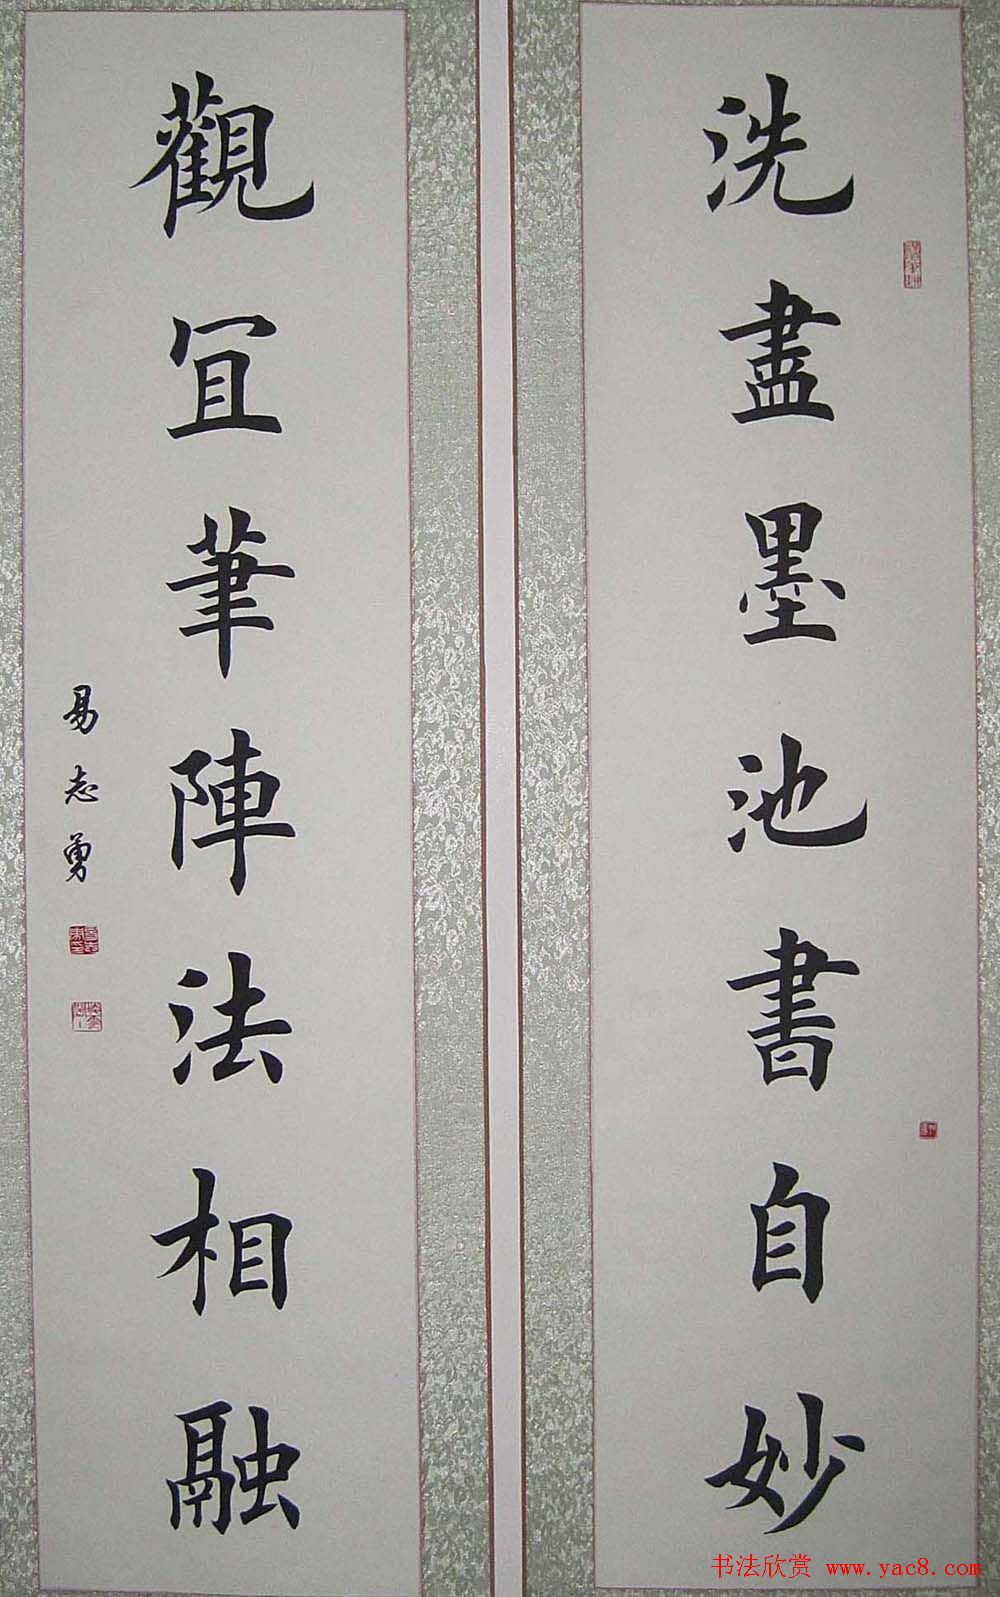 洗盡墨池書自妙
觀冝筆陣法相融
易志勇
书法欣赏 www.yac8.com